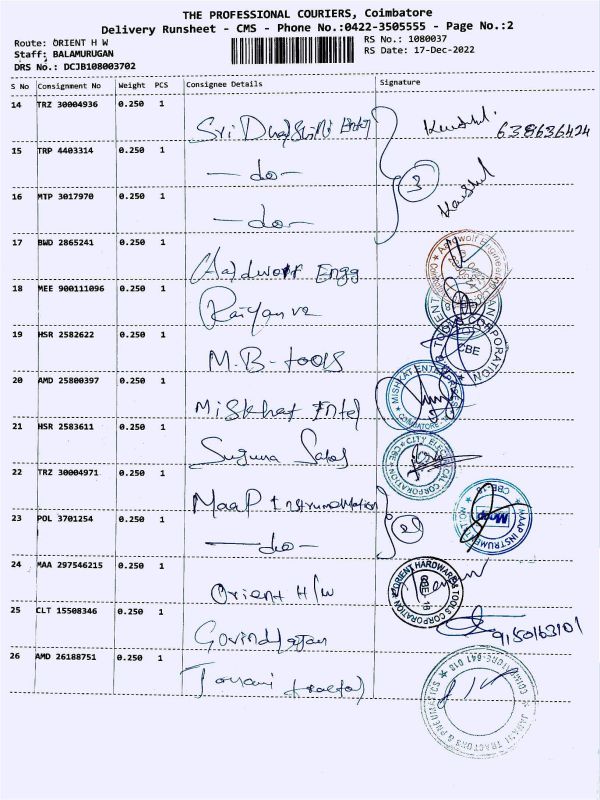 THE PROFESSIONAL COURIERS, Coimbatore
Delivery Runsheet - CMS - Phone No.:0422-3505555 - Page No.:2
Route: ORIENT H W
RS No.: 1080037
Staff: BALAMURUGAN
RS Date: 17-Dec-2022
DRS No.: DCJB108003702
S No Consignment No Weight PCS Consignee Details Signature
14 TRZ 30004936 0.250 1
Sri
15 TRP 4403314 0.250 1
-do-
3
16 MTP 3017970 0.250 1
-do-
17 BWD 2865241 0.250 1
Engg
18 MEE 900111096 0.250 1
19 HSR 2582622 0.250 1
M.B-tools
TOOLS CORPORATION
CBE
20 AMD 25800397 0.250 1
Miskhat Entel
MISHKAT ENTERPRISES
COIMBATORE
21 HSR 2583611 0.250 1
Suguna Sales
CITY ELECTRICAL CORPORATION
CBE
22 TRZ 30004971 0.250 1
Maap Instrumentation
MAAP INSTRUMENTATION
Maap
CBE-18
23 POL 3701254 0.250 1
-do-
24 MAA 297546215 0.250 1
Orient H/W
ORIENT HARDWARE & TOOLS CORPORATION
CBE 18
25 CLT 15508346 0.250 1
9150163101
26 AMD 26188751 0.250 1
TRACTORS & PNEUMATICS
COIMBATORE-641 018